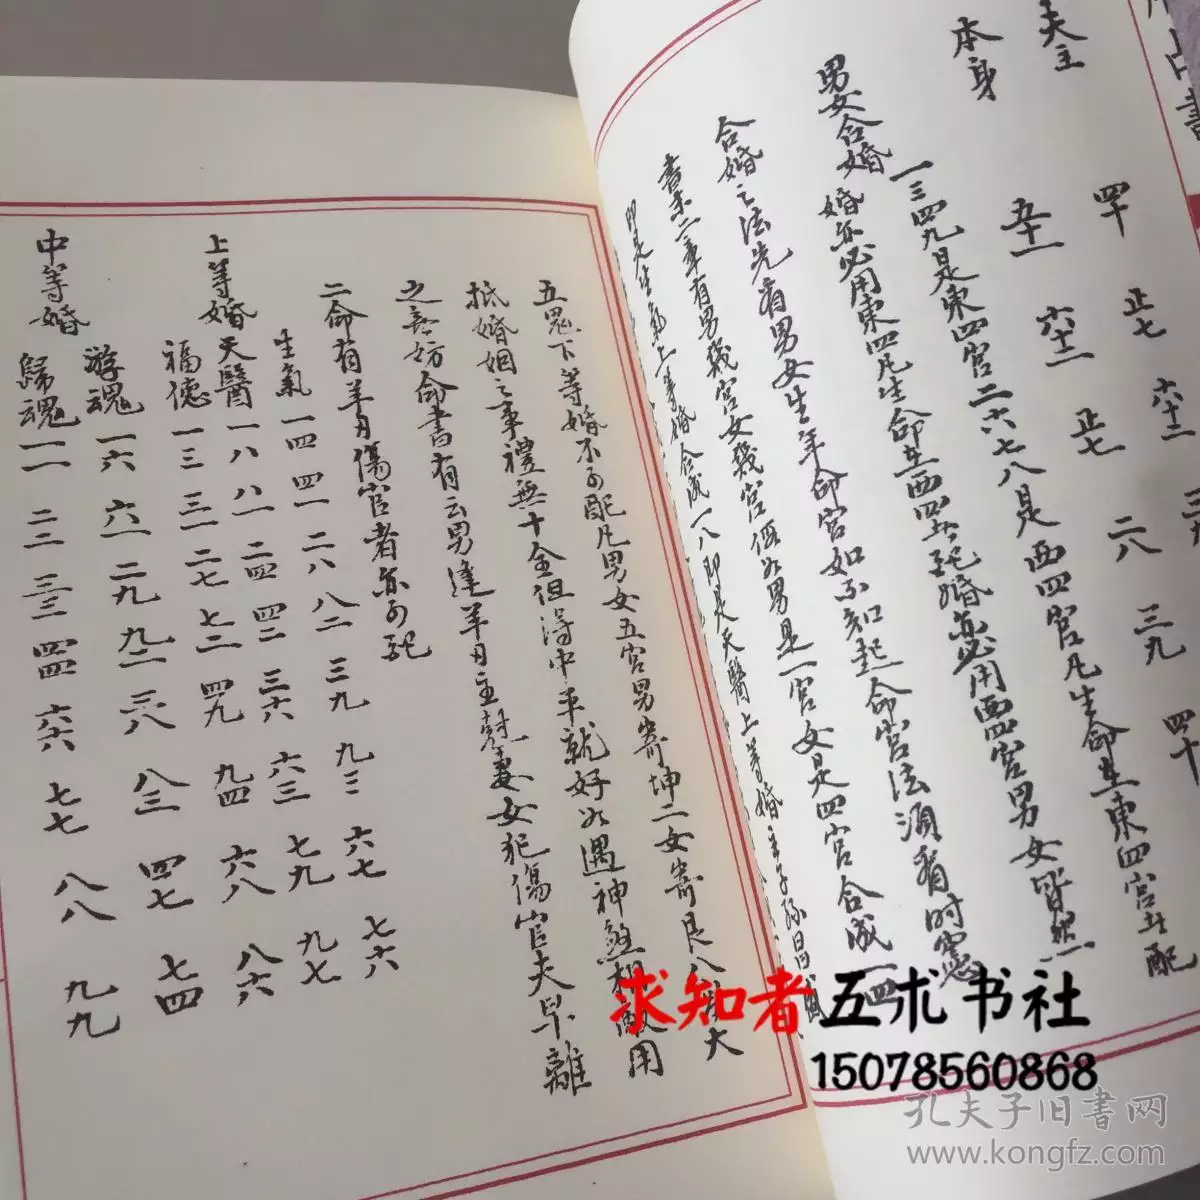 占書
夫主 四十 正七 六十二 三九
本身 五十一 六十二 正七 二八 三九 四十
男女合婚 一三四九是東四宮二六七八是西四宮凡生命在東四宮女配
婚亦必用東四凡生命在西四女配婚亦必用西四宮男女皆然
合婚之法先看男女生年命宮如不知起命宮法須看時憲
書末二章看男幾宮女幾宮假如男是一宮女是四宮合成一四
即是生氣上等婚合成一八即是天醫上等婚主子孫昌盛
五鬼下等婚不可配凡男女五宮男寄坤二女寄艮八
大
抵婚姻之事禮無十全但得中平就好如遇神煞相敵用
之無妨命書有云男逢羊刃主尅妻女犯傷官夫早離
二命有羊刃傷官者亦可配
生氣 一四 四一 二八 八二 三九 九三 六七 七六
上等婚 天醫 一八 八一 二四 四二 三六 六三 七九 九七
福德 一三 三一 二七 七二 四九 九四 六八 八六
中等婚 游魂 一六 六一 二九 九二 三八 八三 四七 七四
歸魂 一一 二二 三三 四四 六六 七七 八八 九九
求知者 五术书社
15078560868
孔夫子旧書网
www.kongfz.com